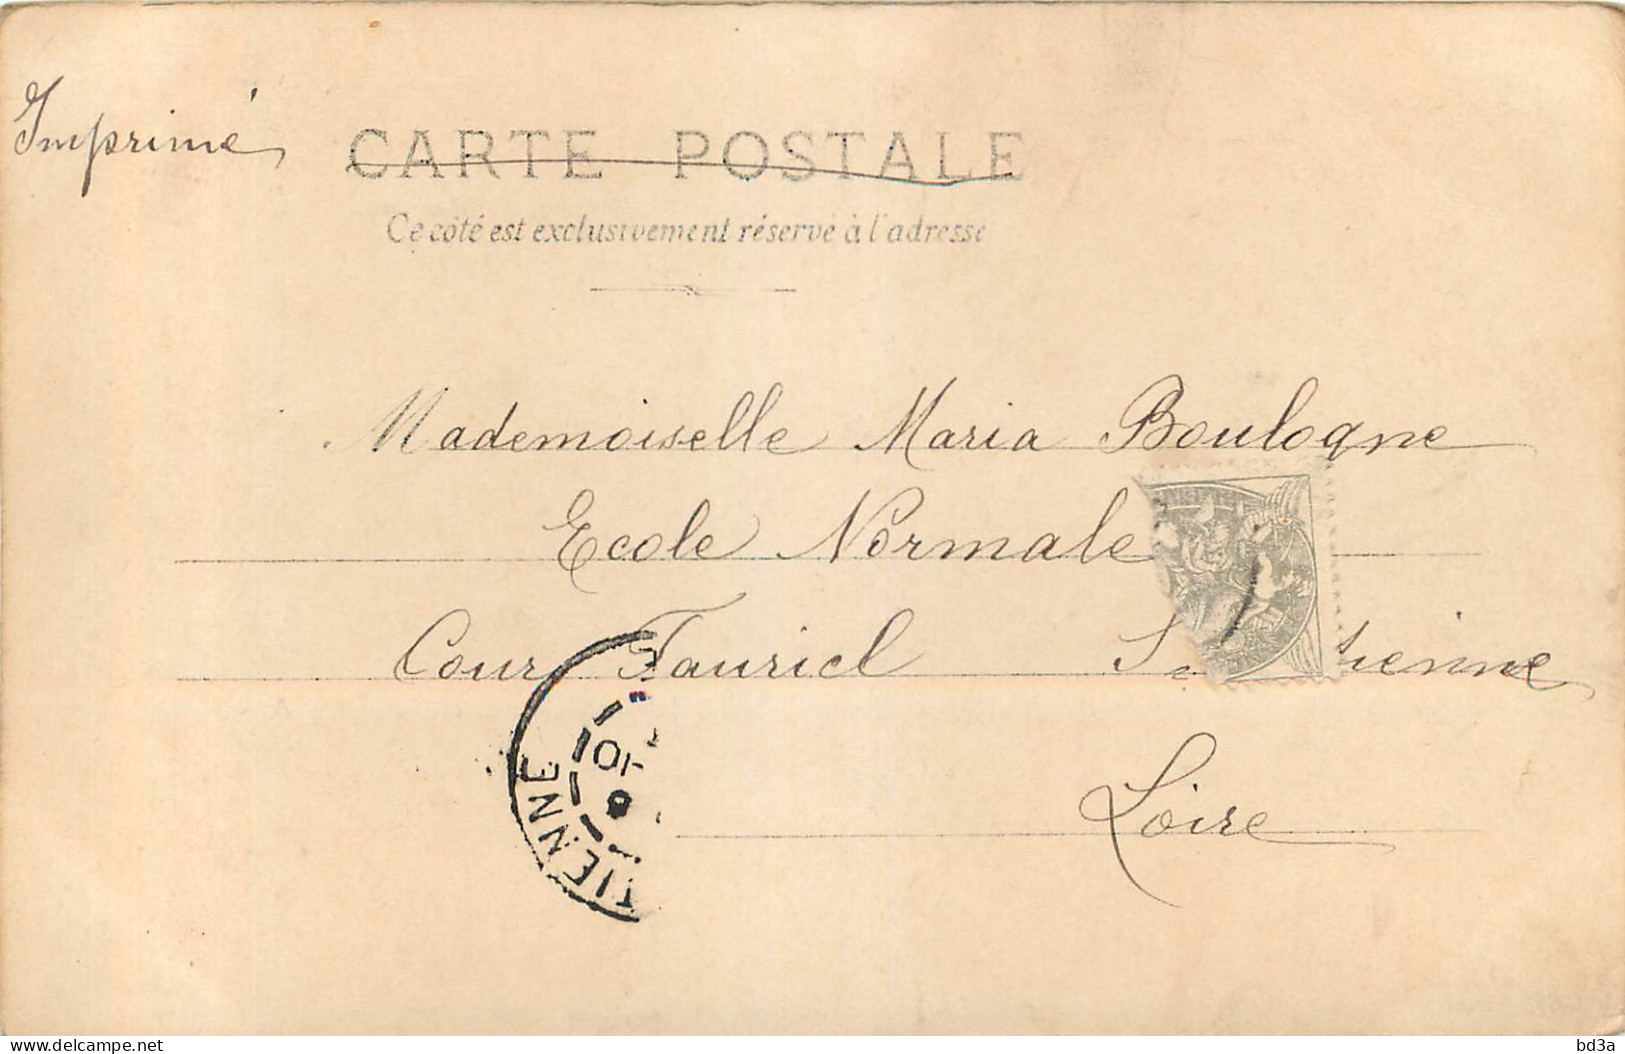 Imprimé
CARTE POSTALE
Ce côté est exclusivement réservé à l'adresse
Mademoiselle Maria Boulogne
Ecole Normale
Cour Fauriel S tienne
Loire
TIENNE
10
6
bd3a